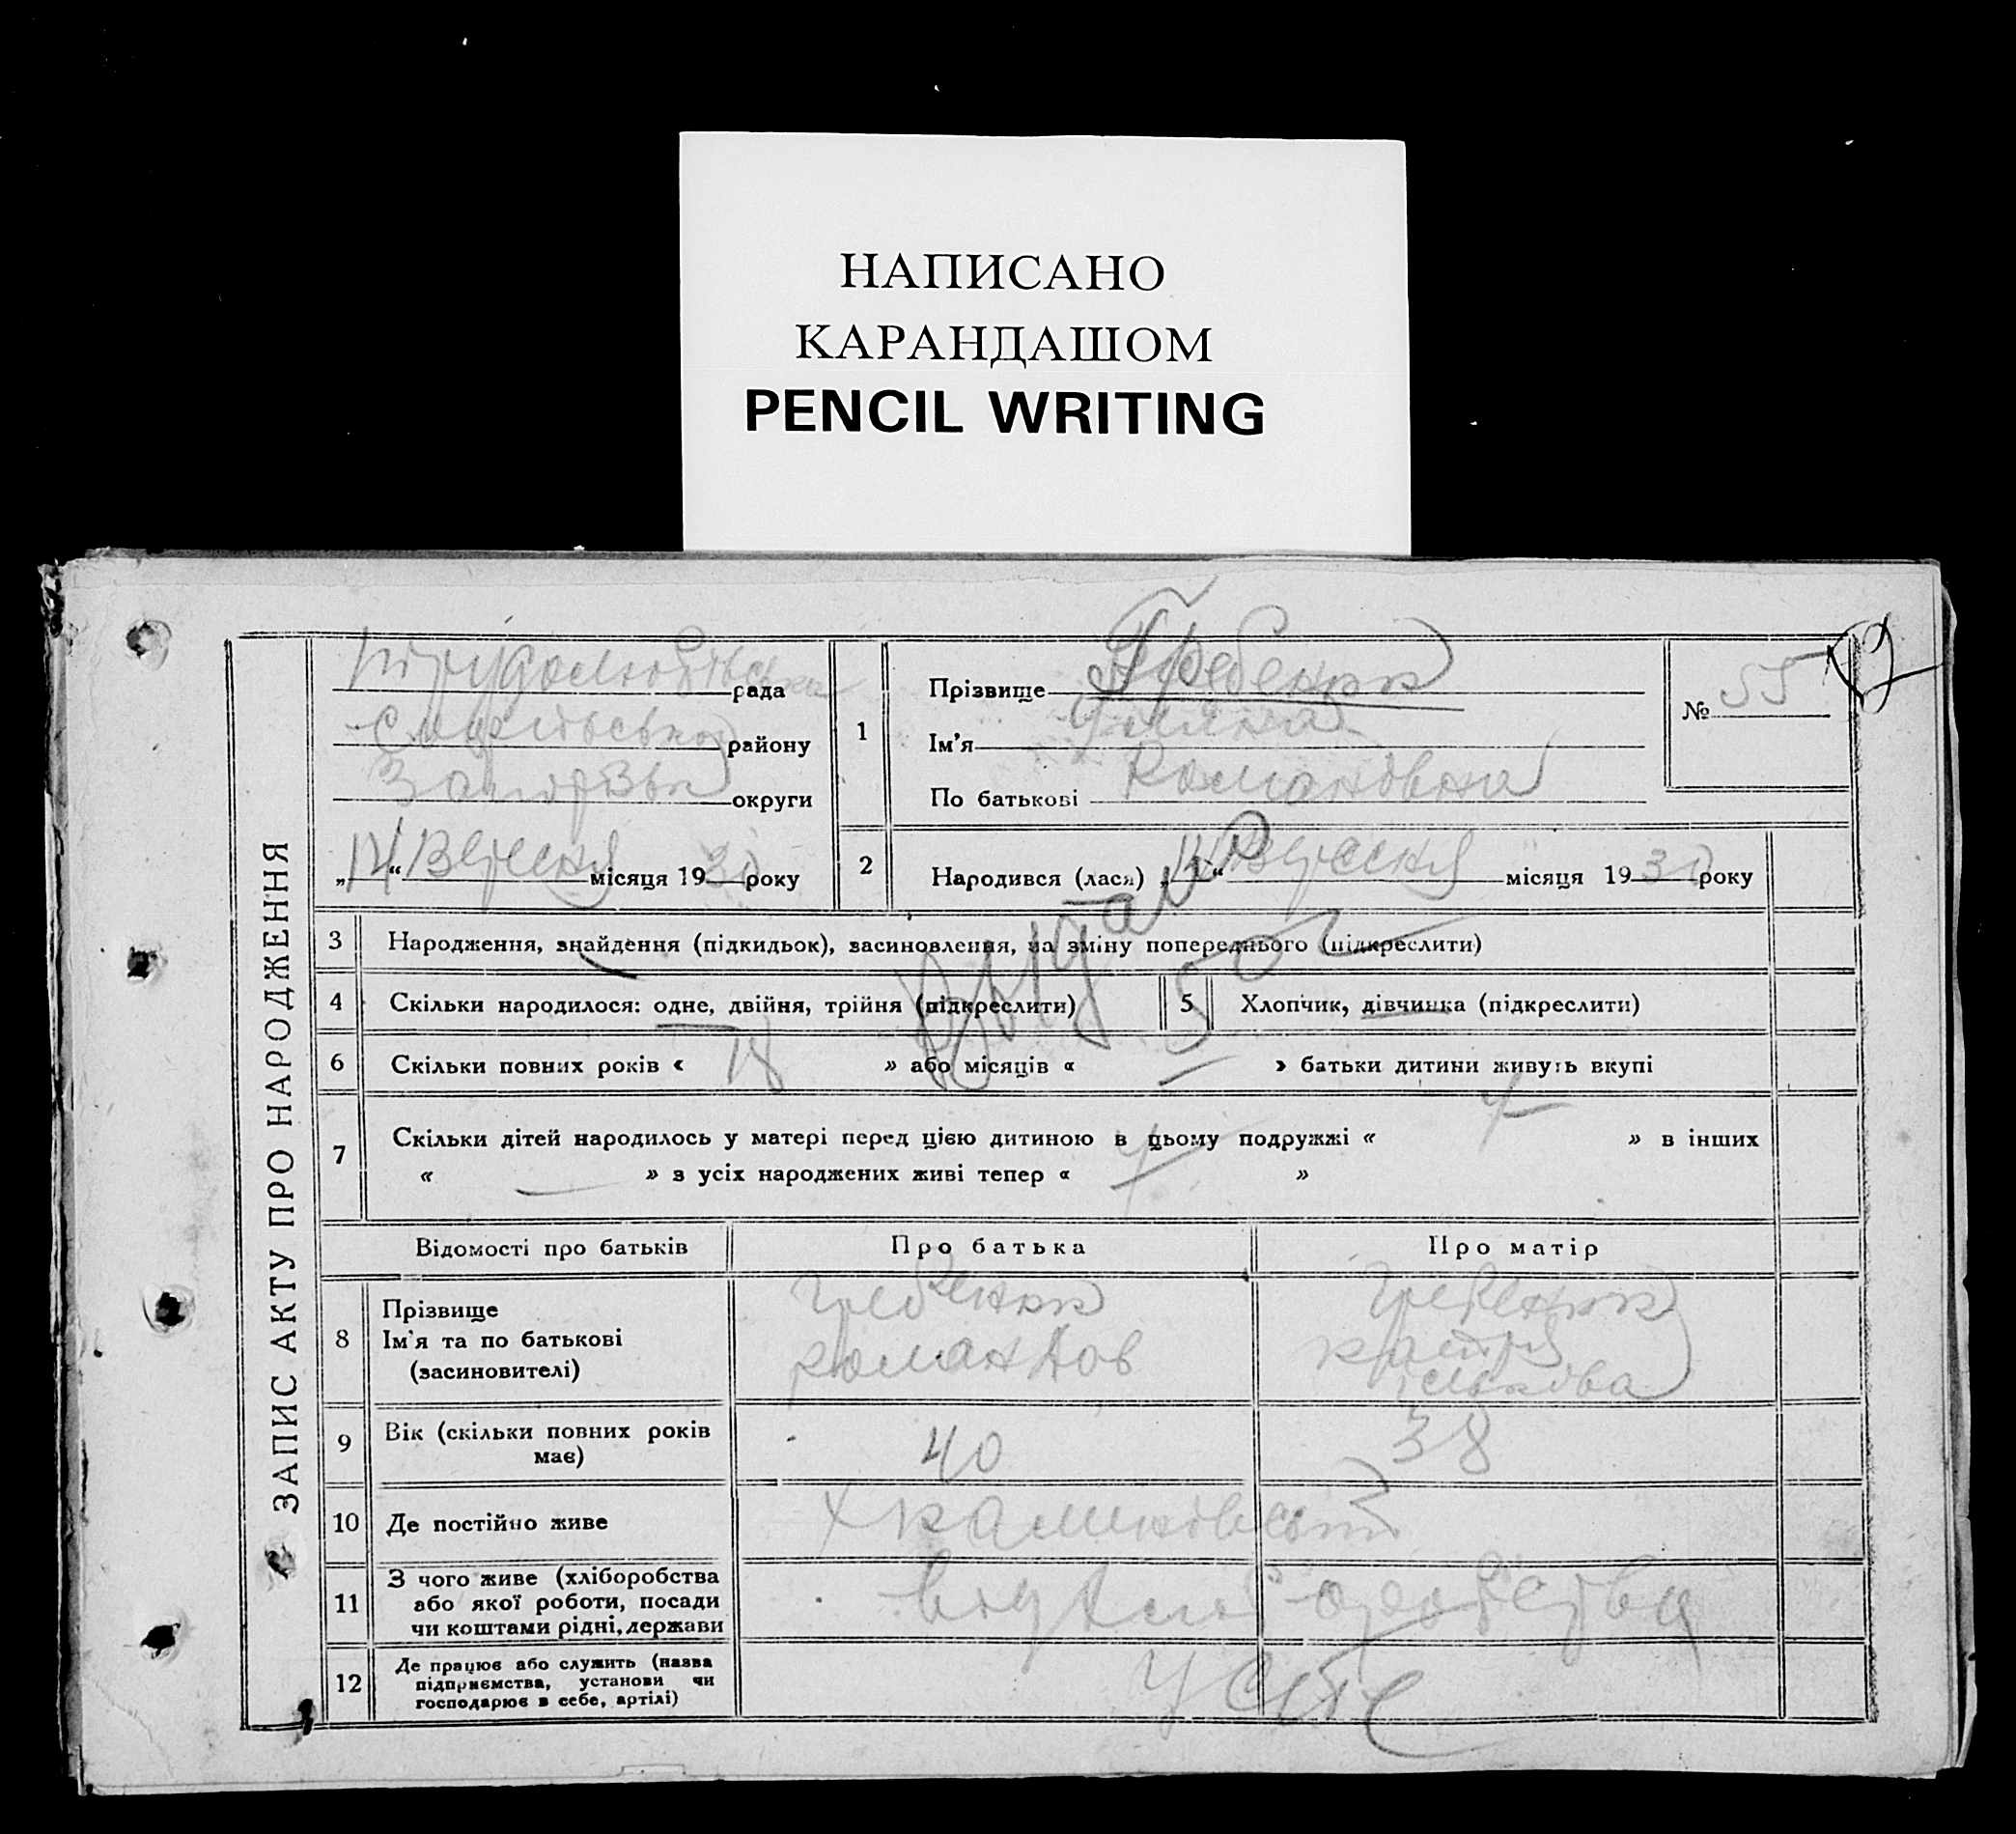 НАПИСАНО
КАРАНДАШОМ
PENCIL WRITING
ЗАПИС АКТУ ПРО НАРОДЖЕННЯ
Трудолюбівська рада
району
округи
„14“ Вересня місяця 1930 року
1
Прізвище Гребенюк
Ім’я Уляна
По батькові Романовна
№ 55
2
Народився (лася) „14“ Вересня місяця 1930 року
3 Народження, знайдення (підкидьок), засиновлення, на зміну попереднього (підкреслити)
4 Скільки народилося: одне, двійня, трійня (підкреслити)
5 Хлопчик, дівчинка (підкреслити)
6 Скільки повних років « 18 » або місяців « » батьки дитини живуть вкупі
7 Скільки дітей народилось у матері перед цією дитиною в цьому подружжі « 4 » в інших
« — » з усіх народжених живі тепер « 4 »
Відомості про батьків Про батька Про матір
8 Прізвище
Ім’я та по батькові
(засиновителі)
Гребенюк
Роман
Гребенюк
9 Вік (скільки повних років має) 40 38
10 Де постійно живе
11 З чого живе (хліборобства
або якої роботи, посади
чи коштами рідні, держави
12 Де працює або служить (назва
підприємства, установи чи
господарює в себе, артілі)
У себе